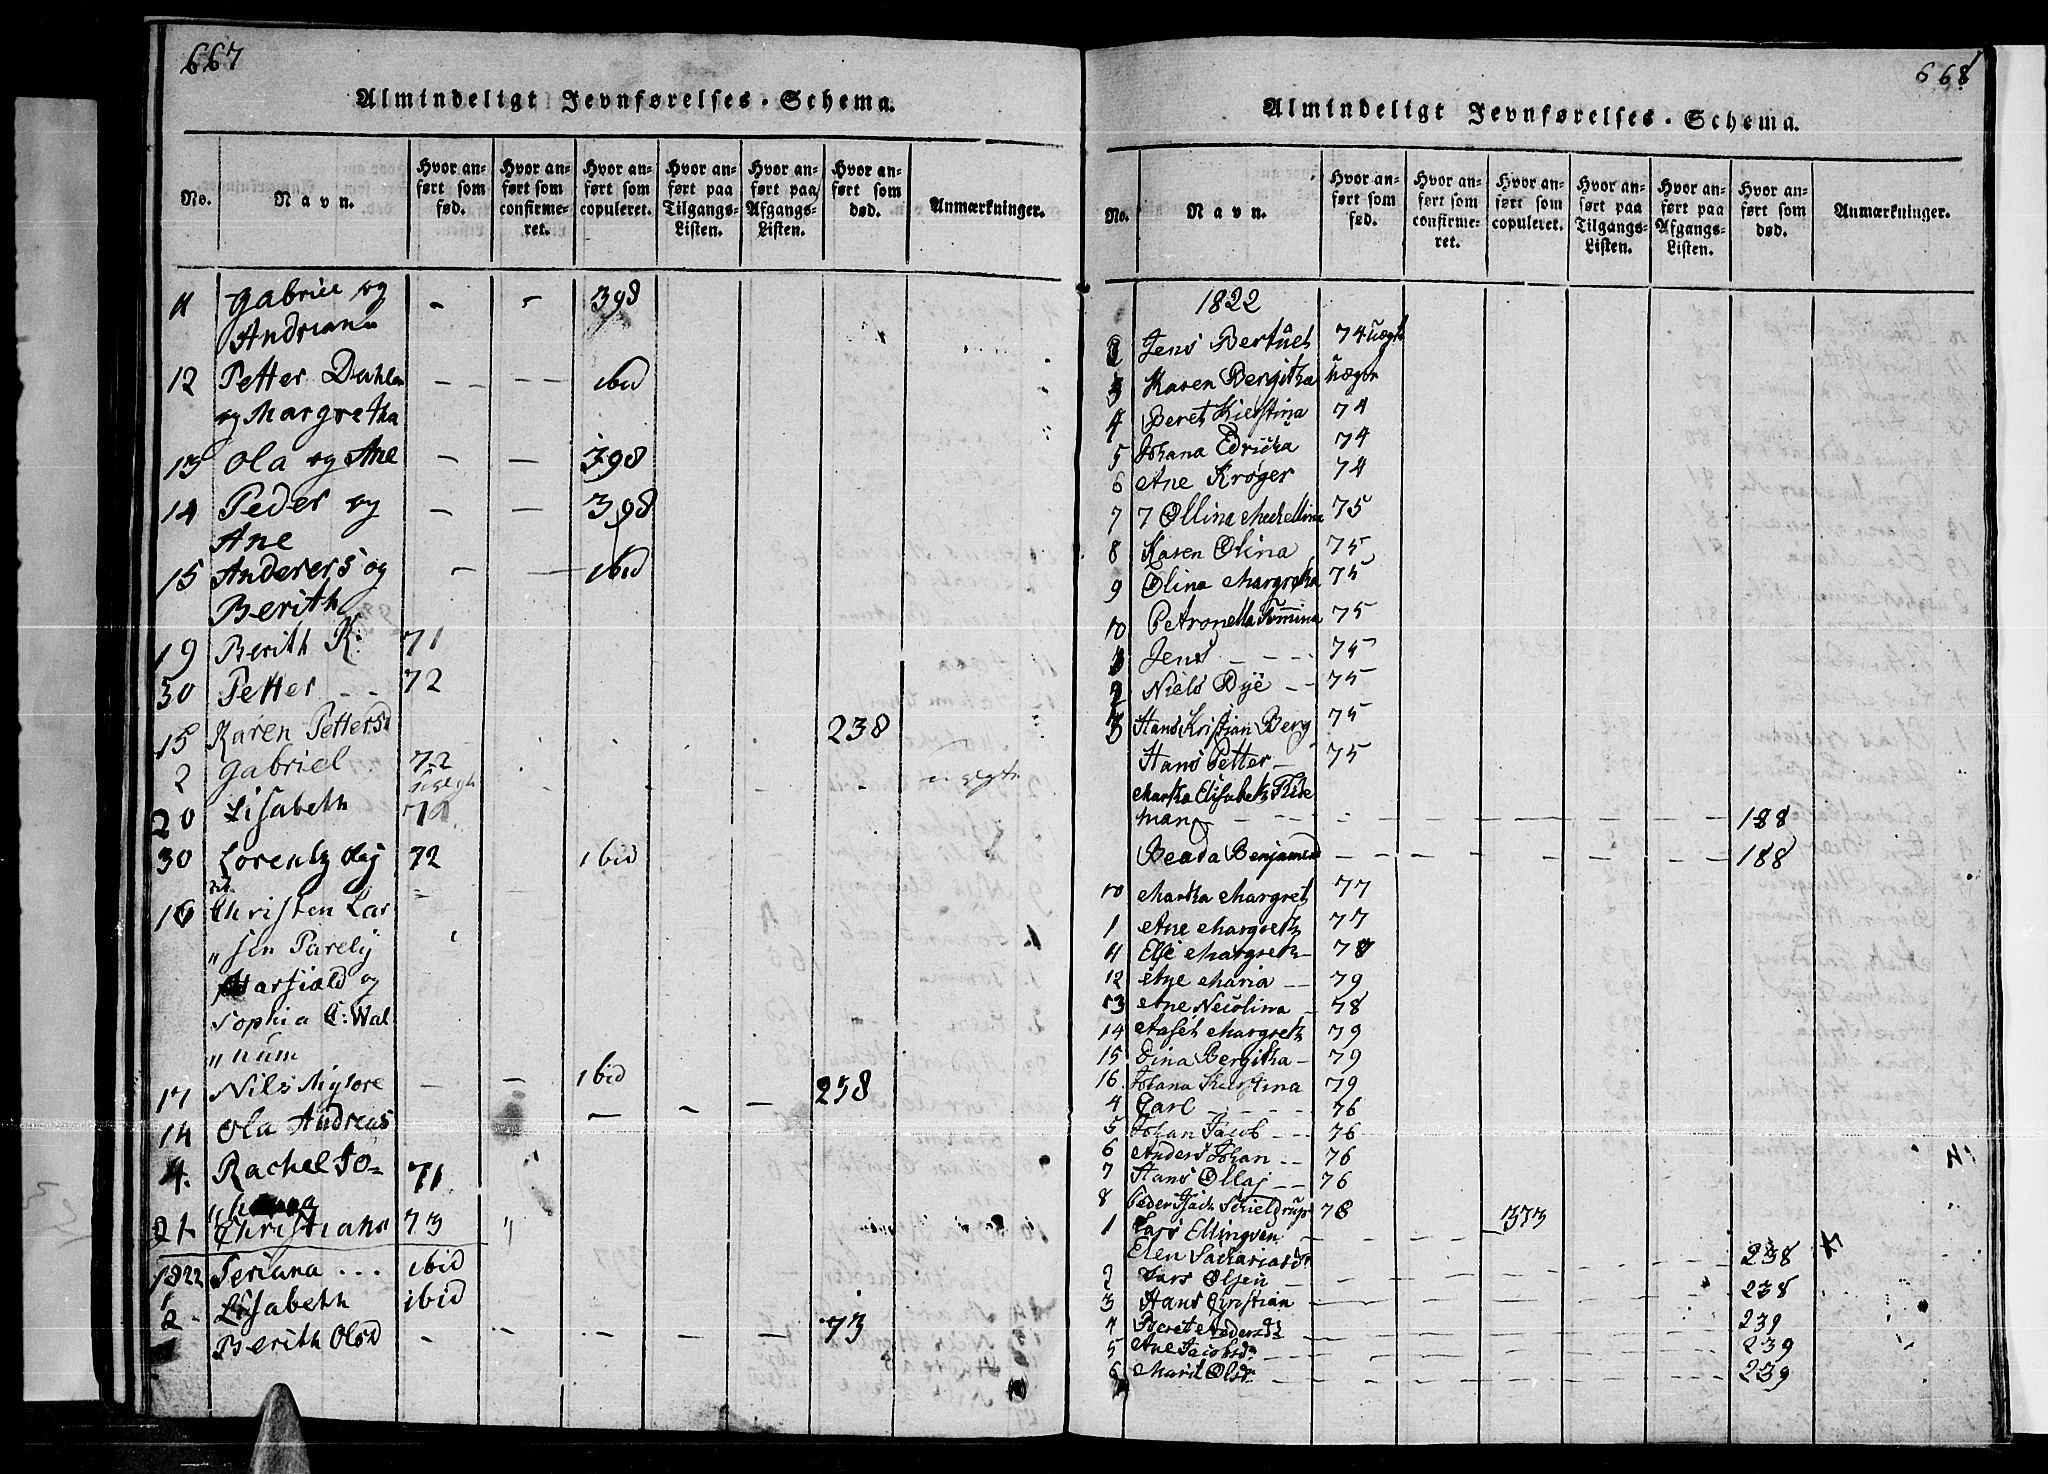 667
Almindeligt Jevnførelses-Schema.
No.
Navn.
Hvor anført som fød.
Hvor anført som confirmeret.
Hvor anført som copuleret.
Hvor anført paa Tilgangs-Listen.
Hvor anført paa Afgangs-Listen.
Hvor anført som død.
Anmærkninger.
11 Gabriel og - - 398
Andriana
12 Petter Dahlen - - - - - ibid
og Margretha
13 Ola og Ane - - 398
14 Peder og - - 398
Ane
15 Anderers og - - ibid
Berith
19 Berith K: 71
30 Petter - - 72
15 Karen Pettersd 238
2 Gabriel 72
20 Lisabeth 71
30 Lorentz Olaj 72 ibid
16 Christen Lar
„sen Parely
Harsiæld og
Sophia C: Wal
„num
17 Nils Mylore - - ibid 238
14 Ola Andreas - - -
4. Rachel Jo- 71
21 Christiana 73 "
1822 Periana ... ibid
1 Lisabeth ibid
2 Berith Olsd - - - - - 73
668
Almindeligt Jevnførelses-Schema.
No.
Navn.
Hvor anført som fød.
Hvor anført som confirmeret.
Hvor anført som copuleret.
Hvor anført paa Tilgangs-Listen.
Hvor anført paa Afgangs-Listen.
Hvor anført som død.
Anmærkninger.
1822
Jens Bertuel 74 uægte
3 Karen Bergitha uægte
4 Beret Kierstina 74
5 Johana Edricka 74
6 Ane Krøger 74
7 7 Ollina Meckellina 75
8 Karen Olina 75
9 Olina Margretha 75
10 Petronella Tommina 75
1 Jens - - - - 75
2 Niels Dye - - 75
3 Hans Kristian Berg 75
Hans Petter - 75
Martha Elisabeth Tide
man - - - - - - - 188
Beada Benjamind - - - - - 188
10 Martha Margret 77
1 Ane Margreth 77
11 Else Margreth - 78
12 Ane Maria - - 79
13 Ane Necolina - 78
14 Aaset Margreth 79
15 Dina Bergitha - 79
16 Johana Kierstina 79
4 Carl - - - - 76
5 Johan Jacob - - - 76
6 Anders Johan - - 76
7 Hans Ollaj - - 76
8 Peder Isach Schieldrup 76
1 Lars Ellingsen - - - 373
Elen Sachariasd - - - - 238
2 Lars Olsen - - - - - 238
3 Hans Christian - - - - - 238
4 Beret Andersd - - - - - 239
5 Ane Jacobsd - - - - - 239
6 Marit Olsd - - - - - 239